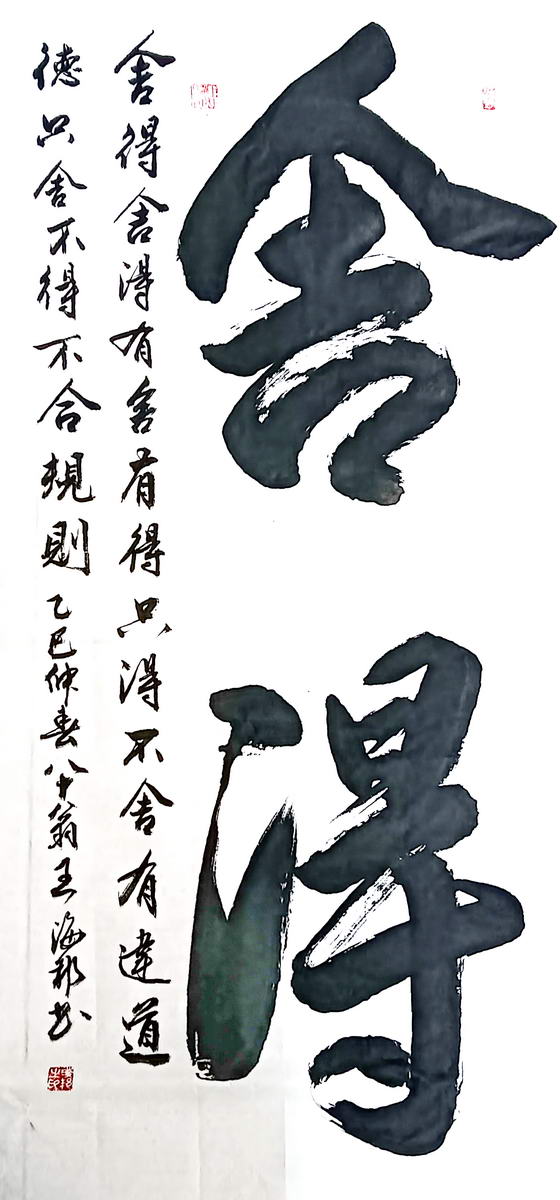 舍得
舍得舍得有舍有得只得不舍有違道
德只舍不得不合規則乙巳仲春八十翁王海邦書